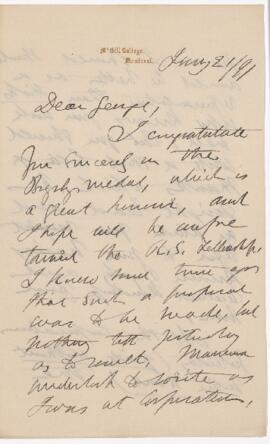 McGill College,
Montreal.
Jany 21/91
Dear George,
I congratulate
you sincerely on the
Bigsby medal, which is
a great honour, and
I hope will be
the R.S. Fellowship.
I knew some time ago
that such a proposal
was to be made, but
nothing yet
as to result. Mamma
undertook to write as
I was at Corporation,